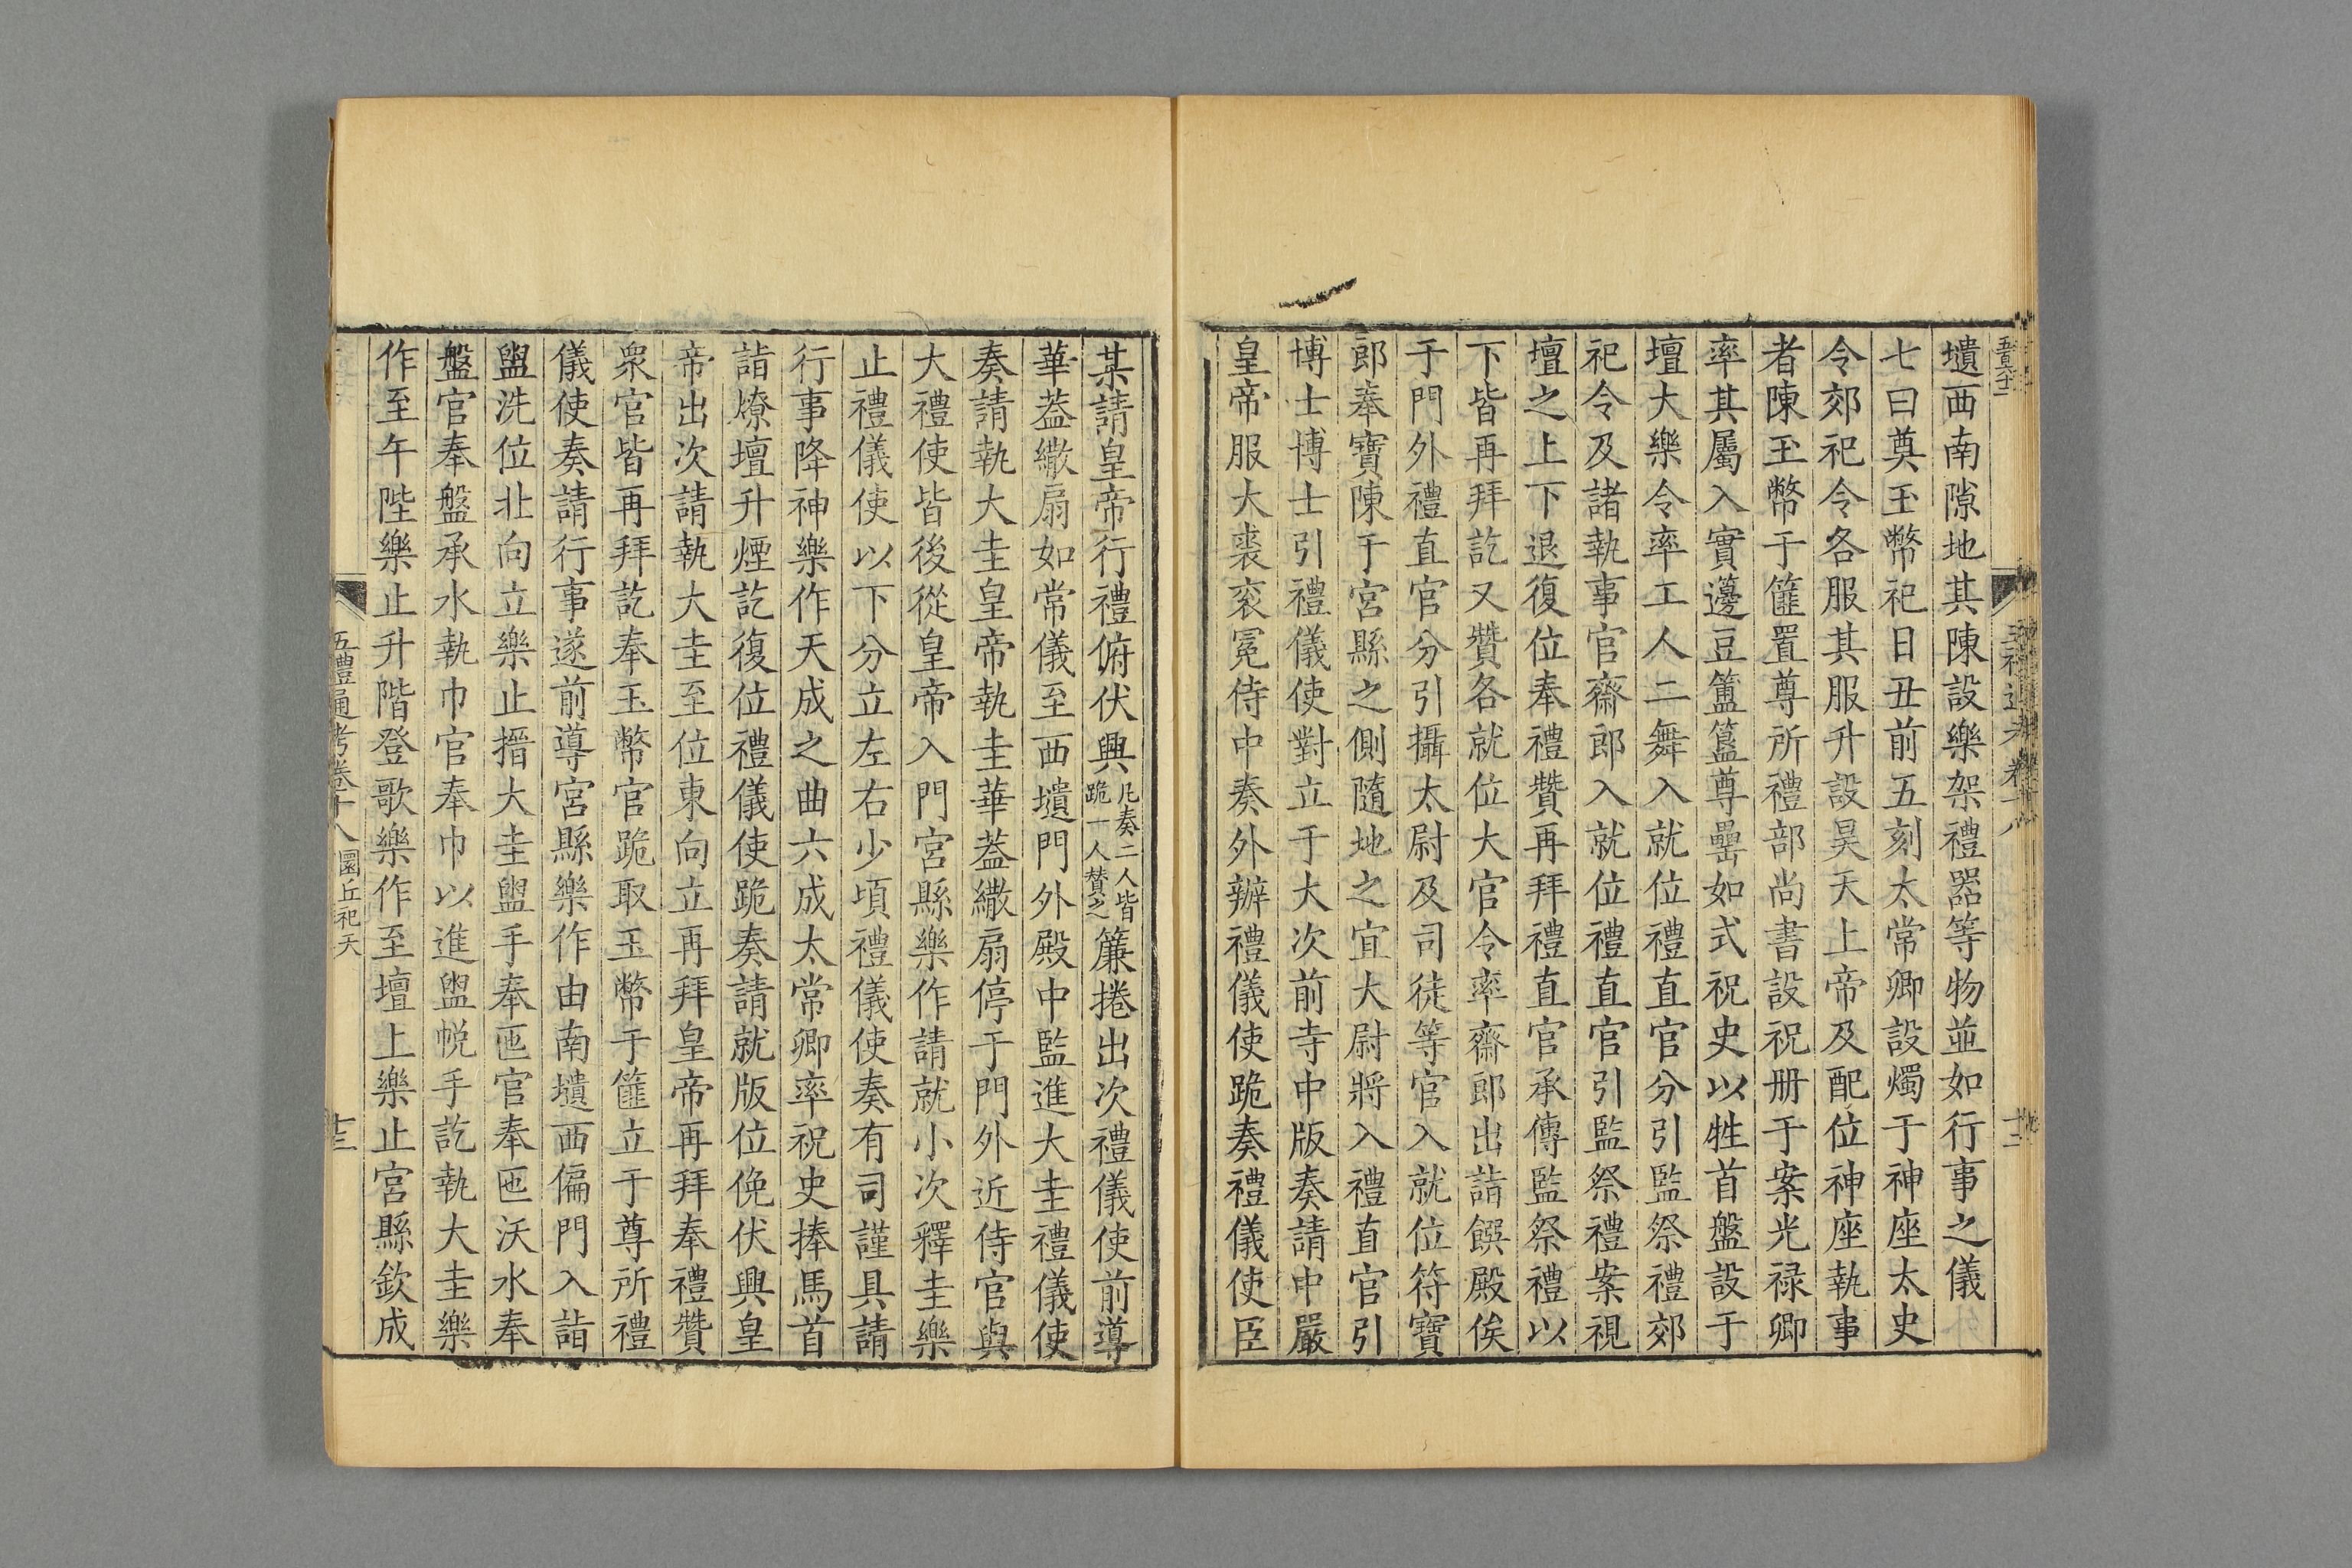 壝西南隙地其陳設樂架禮器等物並如行事之儀
七曰奠玉幣祀日丑前五刻太常卿設燭于神座太史
令郊祀令各服其服升設昊天上帝及配位神座執事
者陳玉幣于篚置尊所禮部尚書設祝册于案光禄卿
率其屬入實籩豆簠簋尊罍如式祝史以牲首盤設于
壇大樂令率工人二舞入就位禮直官分引監祭禮郊
祀令及諸執事官齋郎入就位禮直官引監祭禮案視
壇之上下退復位奉禮贊再拜禮直官承傳監祭禮以
下皆再拜訖又贊各就位大官令率齋郎出詣饌殿俟
于門外禮直官分引攝太尉及司徒等官入就位符寶
郎奉寶陳于宮縣之側隨地之宜大尉將入禮直官引
博士博士引禮儀使對立于大次前寺中版奏請中嚴
皇帝服大裘衮冕侍中奏外辦禮儀使跪奏禮儀使臣
某請皇帝行禮俯伏興凡奏二人皆跪一人贊之簾捲出次禮儀使前導
華蓋繖扇如常儀至西壝門外殿中監進大圭禮儀使
奏請執大圭皇帝執圭華蓋繖扇停于門外近侍官與
大禮使皆後從皇帝入門宮縣樂作請就小次釋圭樂
止禮儀使以下分立左右少頃禮儀使奏有司謹具請
行事降神樂作天成之曲六成太常卿率祝史捧馬首
詣燎壇升煙訖復位禮儀使跪奏請就版位俛伏興皇
帝出次請執大圭至位東向立再拜皇帝再拜奉禮贊
衆官皆再拜訖奉玉幣官跪取玉幣于篚立于尊所禮
儀使奏請行事遂前導宮縣樂作由南壝西偏門入詣
盥洗位北向立樂止搢大圭盥手奉匜官奉匜沃水奉
盤官奉盤承水執巾官奉巾以進盥帨手訖執大圭樂
作至午陛樂止升階登歌樂作至壇上樂止宮縣欽成
五禮通考卷十八 圜丘祀天 十三